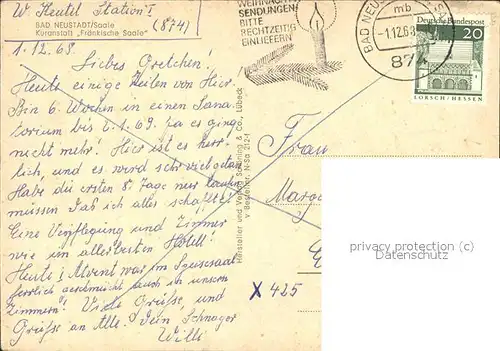 W. Heutel Station I
BAD NEUSTADT/Saale (874)
Kuranstalt „Fränkische Saale"
1.12.68
Liebes Gretchen!
Heute einige Zeilen von hier.
Bin 6. Wochen in einen Sana-
torium bis 6.1.69. Ja es ging
nicht mehr! Hier ist es herr-
lich, und es wird sehr viel getan.
Habe die ersten 8 Tage nur laufen
müssen das ich alles schaffe!
Eine Verpflegung und Zimmer
wie im allerbesten Hotel!
Heute 1 Advent war im Speisesaal
herrlich geschmückt auch in unsern
Zimmern! Viele Grüße, und
Grüße an Alle. Dein Schwager
Willi
WEIHNACHTS
SENDUNGEN
BITTE
RECHTZEITIG
EINLIEFERN
BAD NEUSTADT
mb
-1.12.68
874
Deutsche Bundespost
20
LORSCH/HESSEN
Hersteller und Verlag Schöning & Co., Lübeck
Bestellnr. N-Sa 2121
Frau
X 425
privacy protection (c)
Datenschutz